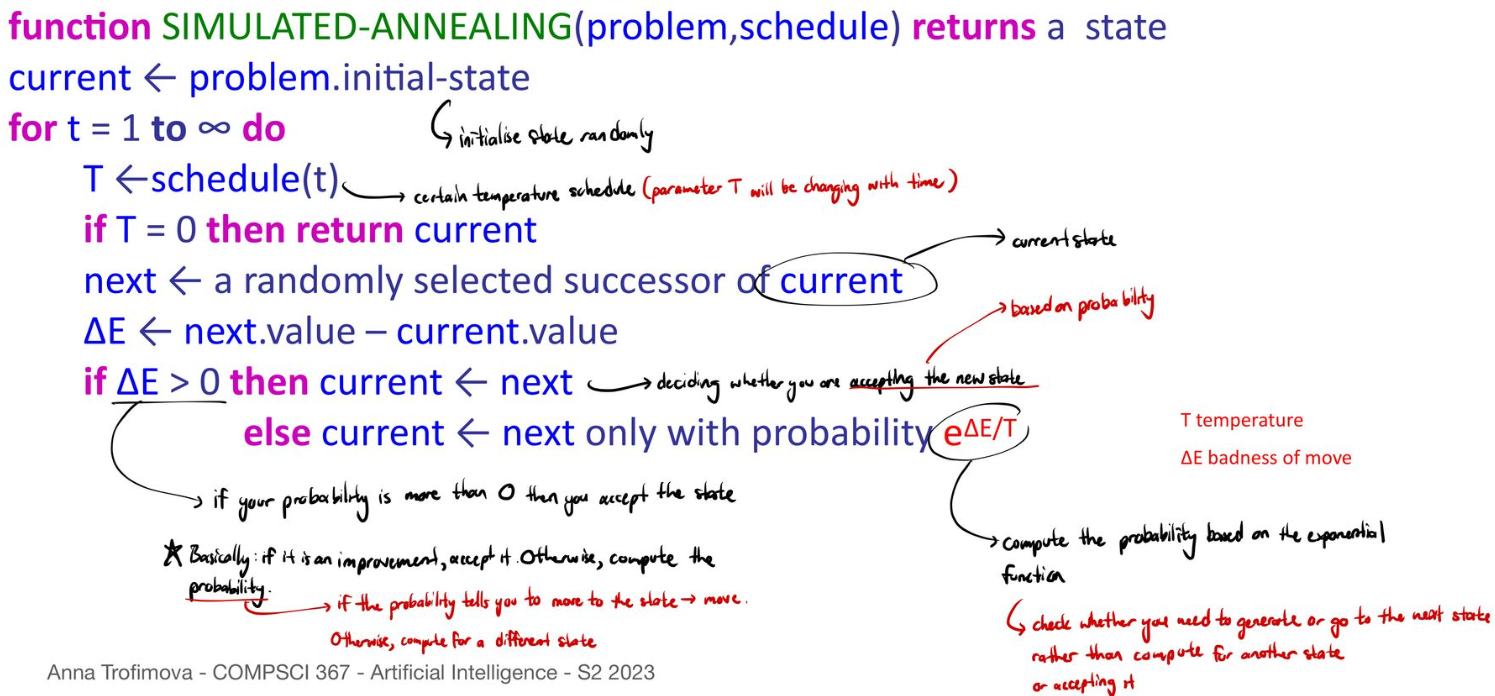 function SIMULATED-ANNEALING(problem,schedule) returns a state
current ← problem.initial-state
initialise state randomly
for t = 1 to ∞ do
T ←schedule(t)
certain temperature schedule (parameter T will be changing with time)
if T = 0 then return current
current state
next ← a randomly selected successor of current
based on probability
ΔE ← next.value – current.value
if ΔE > 0 then current ← next
deciding whether you are accepting the new state
else current ← next only with probability e^ΔE/T
T temperature
ΔE badness of move
if your probability is more than 0 then you accept the state
★ Basically: if it is an improvement, accept it. Otherwise, compute the
probability.
if the probability tells you to move to the state → move.
Otherwise, compute for a different state
compute the probability based on the exponential
function
check whether you need to generate or go to the next state
rather than compute for another state
or accepting it
Anna Trofimova - COMPSCI 367 - Artificial Intelligence - S2 2023